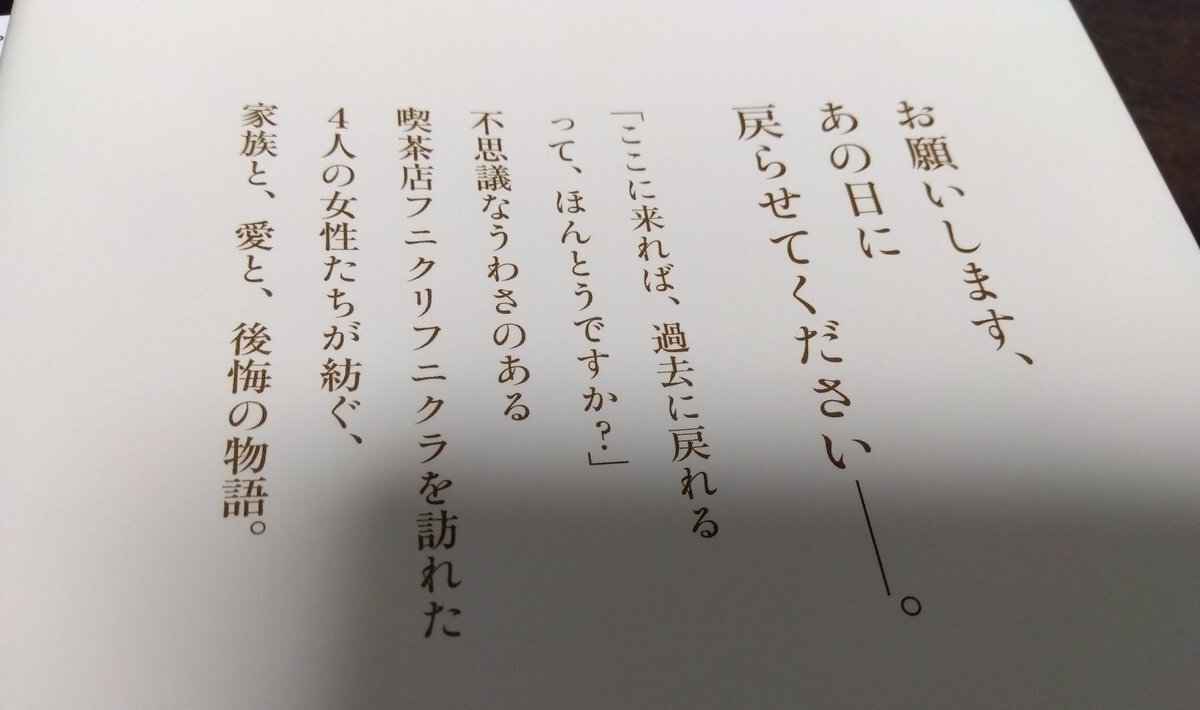 お願いします、
あの日に
戻らせてください――。
「ここに来れば、過去に戻れる
って、ほんとうですか?」
不思議なうわさのある
喫茶店フニクリフニクラを訪れた
4人の女性たちが紡ぐ、
家族と、愛と、後悔の物語。